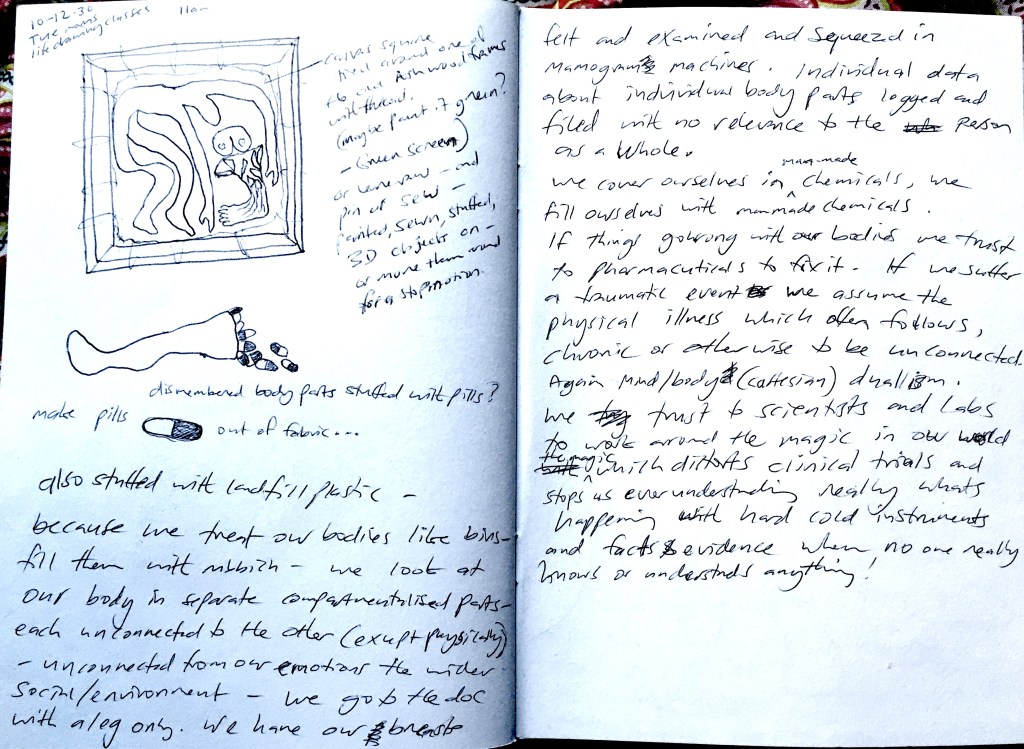 10-12-30 11am
life drawing classes
canvas square
tied around one of
Ash wood frames
with thread.
(maybe paint it green?
- Green Screen)
or leave raw - and
pin or sew -
painted, sewn, stuffed,
3D objects on -
or move them around
for a stop motion.
dismembered body parts stuffed with pills?
make pills out of fabric...
also stuffed with landfill plastic -
because we treat our bodies like bins -
fill them with rubbish - we look at
our body in separate compartmentalised parts -
each unconnected to the other (except physically)
- unconnected from our emotions the wider
social/environment - we go to the doc
with a leg only. We have our breasts
felt and examined and squeezed in
mamogram machines. Individual data
about individual body parts logged and
filed with no relevance to the Person
as a Whole.
we cover ourselves in man-made chemicals, we
fill ourselves with manmade chemicals.
If things go wrong with our bodies we trust
to pharmacuticals to fix it. If we suffer
a traumatic event we assume the
physical illness which often follows,
chronic or otherwise to be unconnected.
Again Mind/body (cartesian) duallism.
We trust to scientists and Labs
to work around the magic in our world
the magic which distorts clinical trials and
stops us ever understanding really whats
happening with hard cold instruments
and facts & evidence when no one really
knows or understands anything!